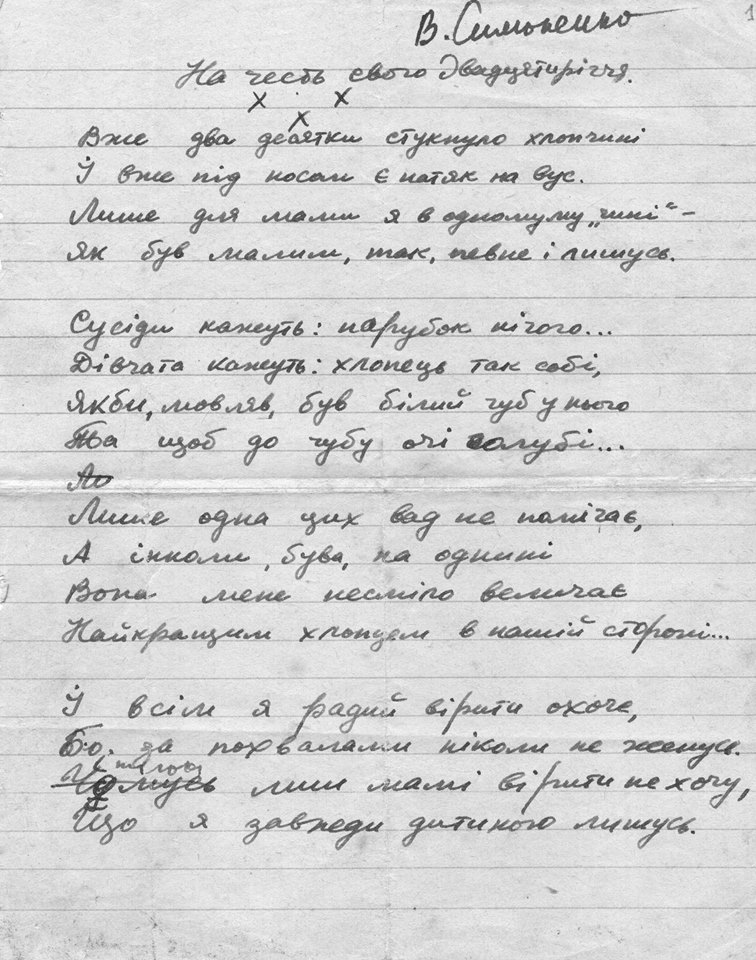 1
В. Симоненко
На честь свого двадцятиріччя.
х х х
Вже два десятки стукнуло хлопчині
І вже під носом є натяк на вус.
Лише для мами я в одному „чині“ –
Як був малим, так, певне і лишусь.
Сусіди кажуть: парубок нічого...
Дівчата кажуть: хлопець так собі,
Якби, мовляв, був білий чуб у нього
Та щоб до чубу очі голубі...
Лише одна цих вад не помічає,
А інколи, бува, на однині
Вона мене несміло величає
Найкращим хлопцем в нашій стороні...
І всім я радий вірити охоче,
Бо за похвалами ніколи не женусь.
Чомусь лиш мамі вірити не хочу,
Що я завжди дитиною лишусь.